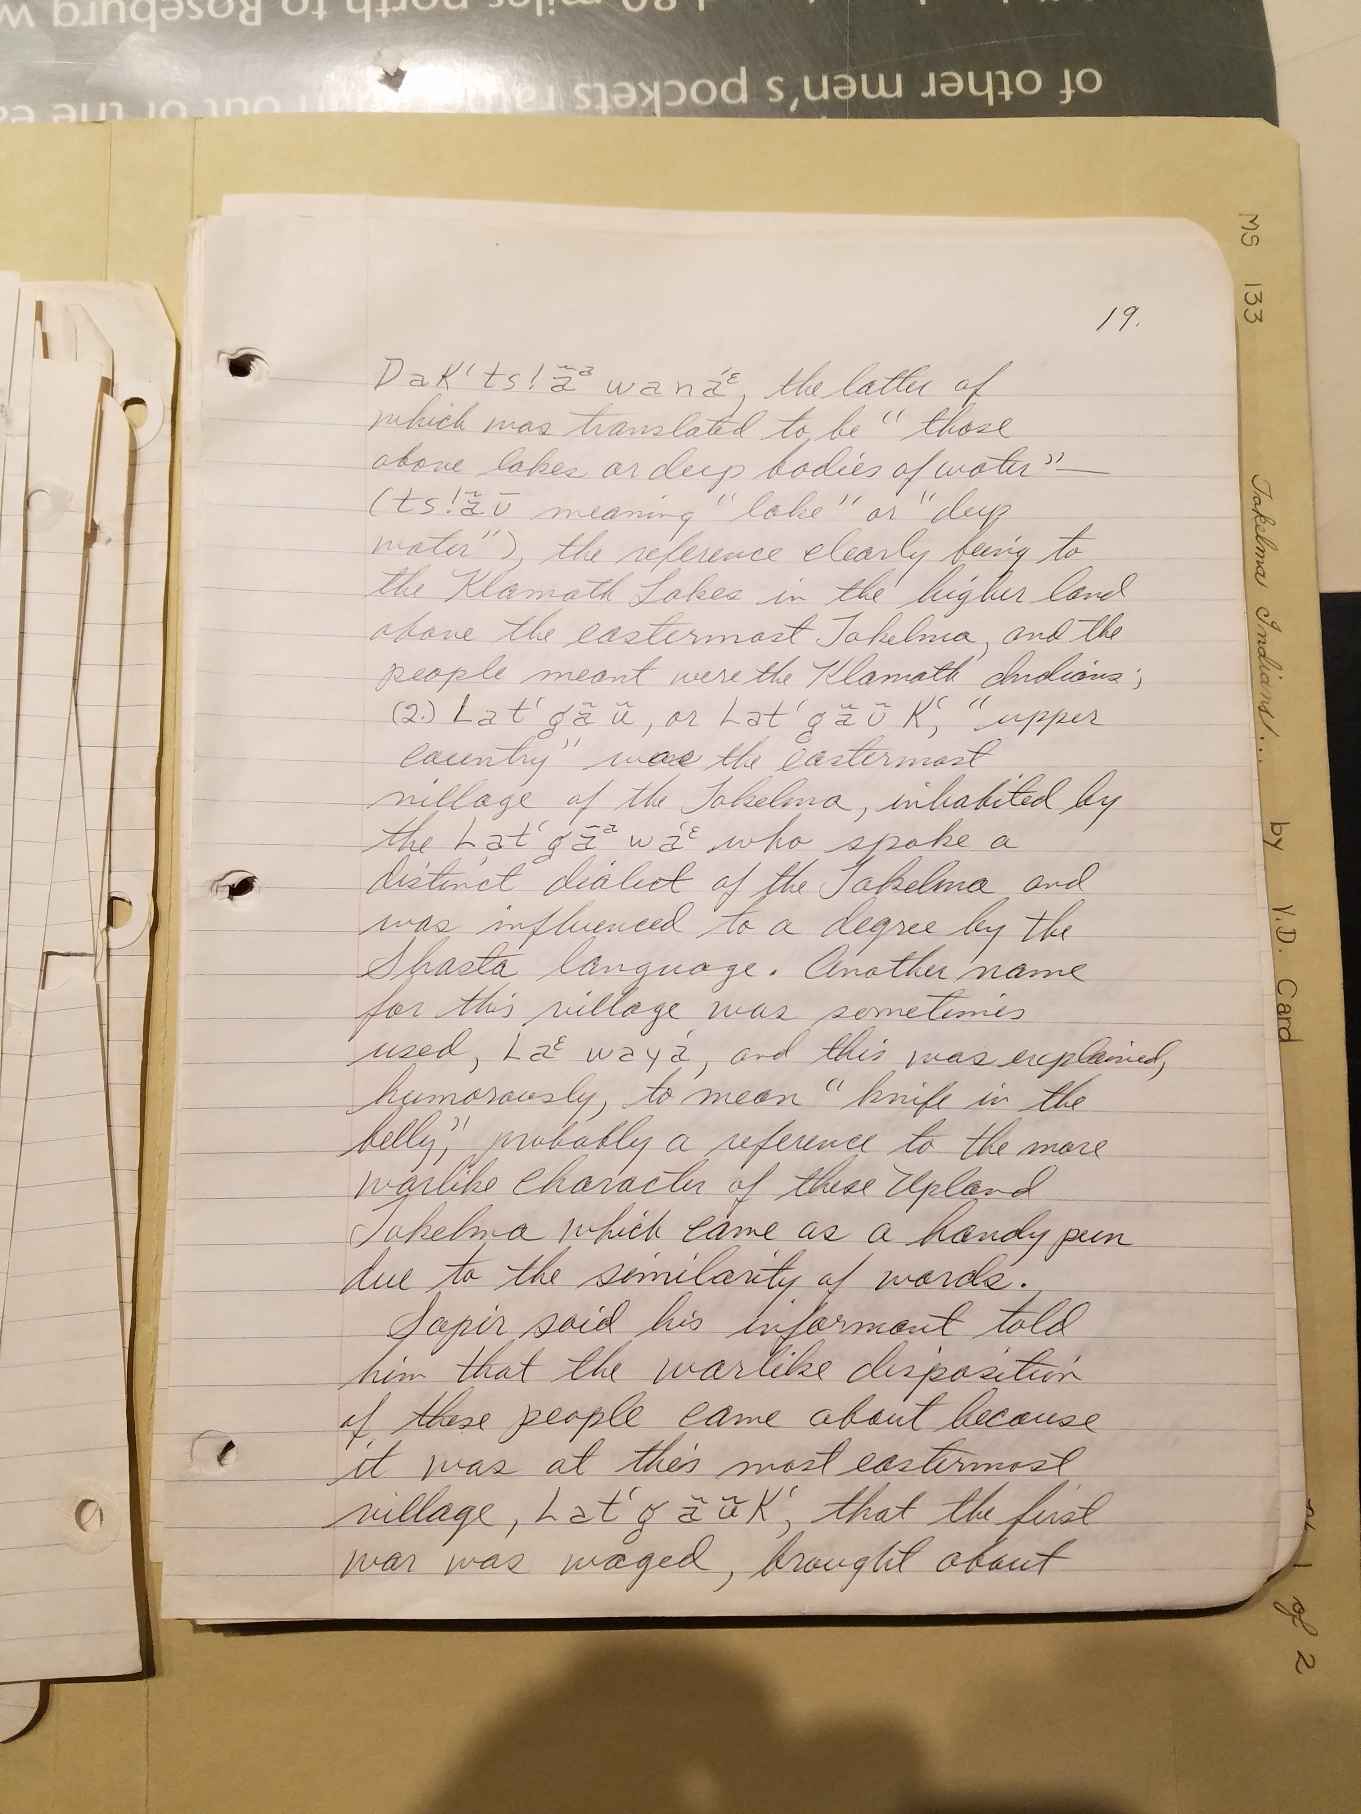 of other men's pockets
19.
Dak' ts!ā̆ᵃ wanáᵋ, the latter of
which was translated to be "those
above lakes or deep bodies of water"—
(ts!ā̆ŭ meaning "lake" or "deep
water"), the reference clearly being to
the Klamath Lakes in the higher land
above the easternmost Takelma, and the
people meant were the Klamath Indians;
(2.) Lat' gā̆ŭ, or Lat' gā̆ŭ k', "upper
country" was the eastermost
village of the Takelma, inhabited by
the Lat' gāᵃ wáᵋ who spoke a
distinct dialect of the Takelma and
was influenced to a degree by the
Shasta language. Another name
for this village was sometimes
used, Laᵋ wayá, and this was explained,
humorously, to mean "knife in the
belly," probably a reference to the more
warlike character of these Upland
Takelma which came as a handy pun
due to the similarity of words.
Sapir said his informant told
him that the warlike disposition
of these people came about because
it was at this most eastermost
village, Lat' gā̆ŭk', that the first
war was waged, brought about
MS 133 Takelma Indians... by Y.D. Card
1 of 2